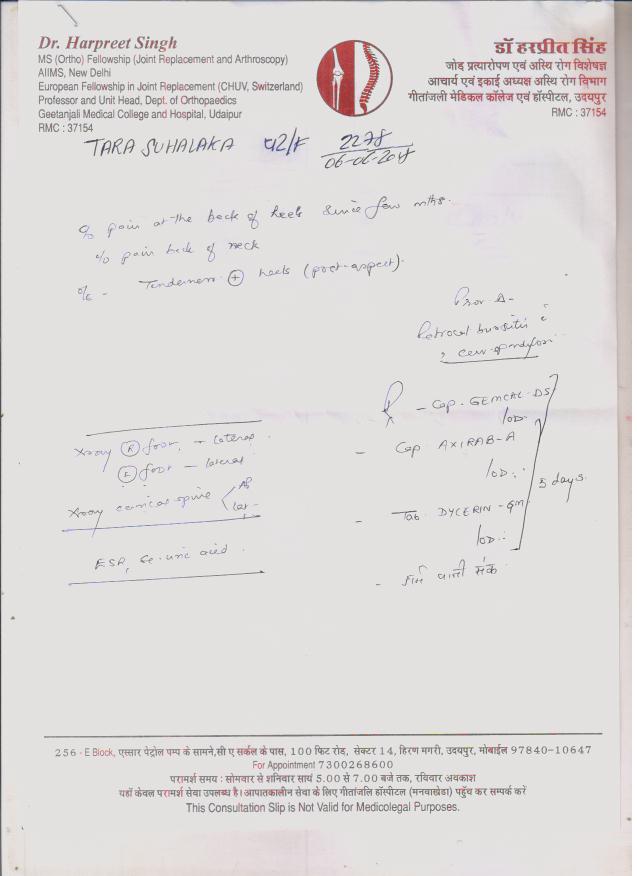 Dr. Harpreet Singh
MS (Ortho) Fellowship (Joint Replacement and Arthroscopy)
AIIMS, New Delhi
European Fellowship in Joint Replacement (CHUV, Switzerland)
Professor and Unit Head, Dept. of Orthopaedics
Geetanjali Medical College and Hospital, Udaipur
RMC : 37154
डॉ हरप्रीत सिंह
जोड़ प्रत्यारोपण एवं अस्थि रोग विशेषज्ञ
आचार्य एवं इकाई अध्यक्ष अस्थि रोग विभाग
गीतांजली मेडिकल कॉलेज एवं हॉस्पीटल, उदयपुर
RMC : 37154
TARA SUHALAKA 42/F 2278
c/o pain at the back of heels since few mths.
c/o pain back of neck
o/e - Tenderness + heels (post-aspect).
Prov Δ-
Xray R foot, - lateral
L foot - lateral
Xray cervical spine AP Lat
ESR, Se. uric acid.
- Cap. GEMCAL-DS
1OD
- Cap AXIRAB-A
1OD
- Tab DYCERIN-GM
1OD
5 days
256 - E Block, एस्सार पेट्रोल पम्प के सामने,सी ए सर्कल के पास, 100 फिट रोड, सेक्टर 14, हिरण मगरी, उदयपुर, मोबाईल 97840-10647
For Appointment 7300268600
परामर्श समय : सोमवार से शनिवार सायं 5.00 से 7.00 बजे तक, रविवार अवकाश
यहाँ केवल परामर्श सेवा उपलब्ध है। आपातकालीन सेवा के लिए गीतांजलि हॉस्पीटल (मनवाखेडा) पहुँच कर सम्पर्क करें
This Consultation Slip is Not Valid for Medicolegal Purposes.